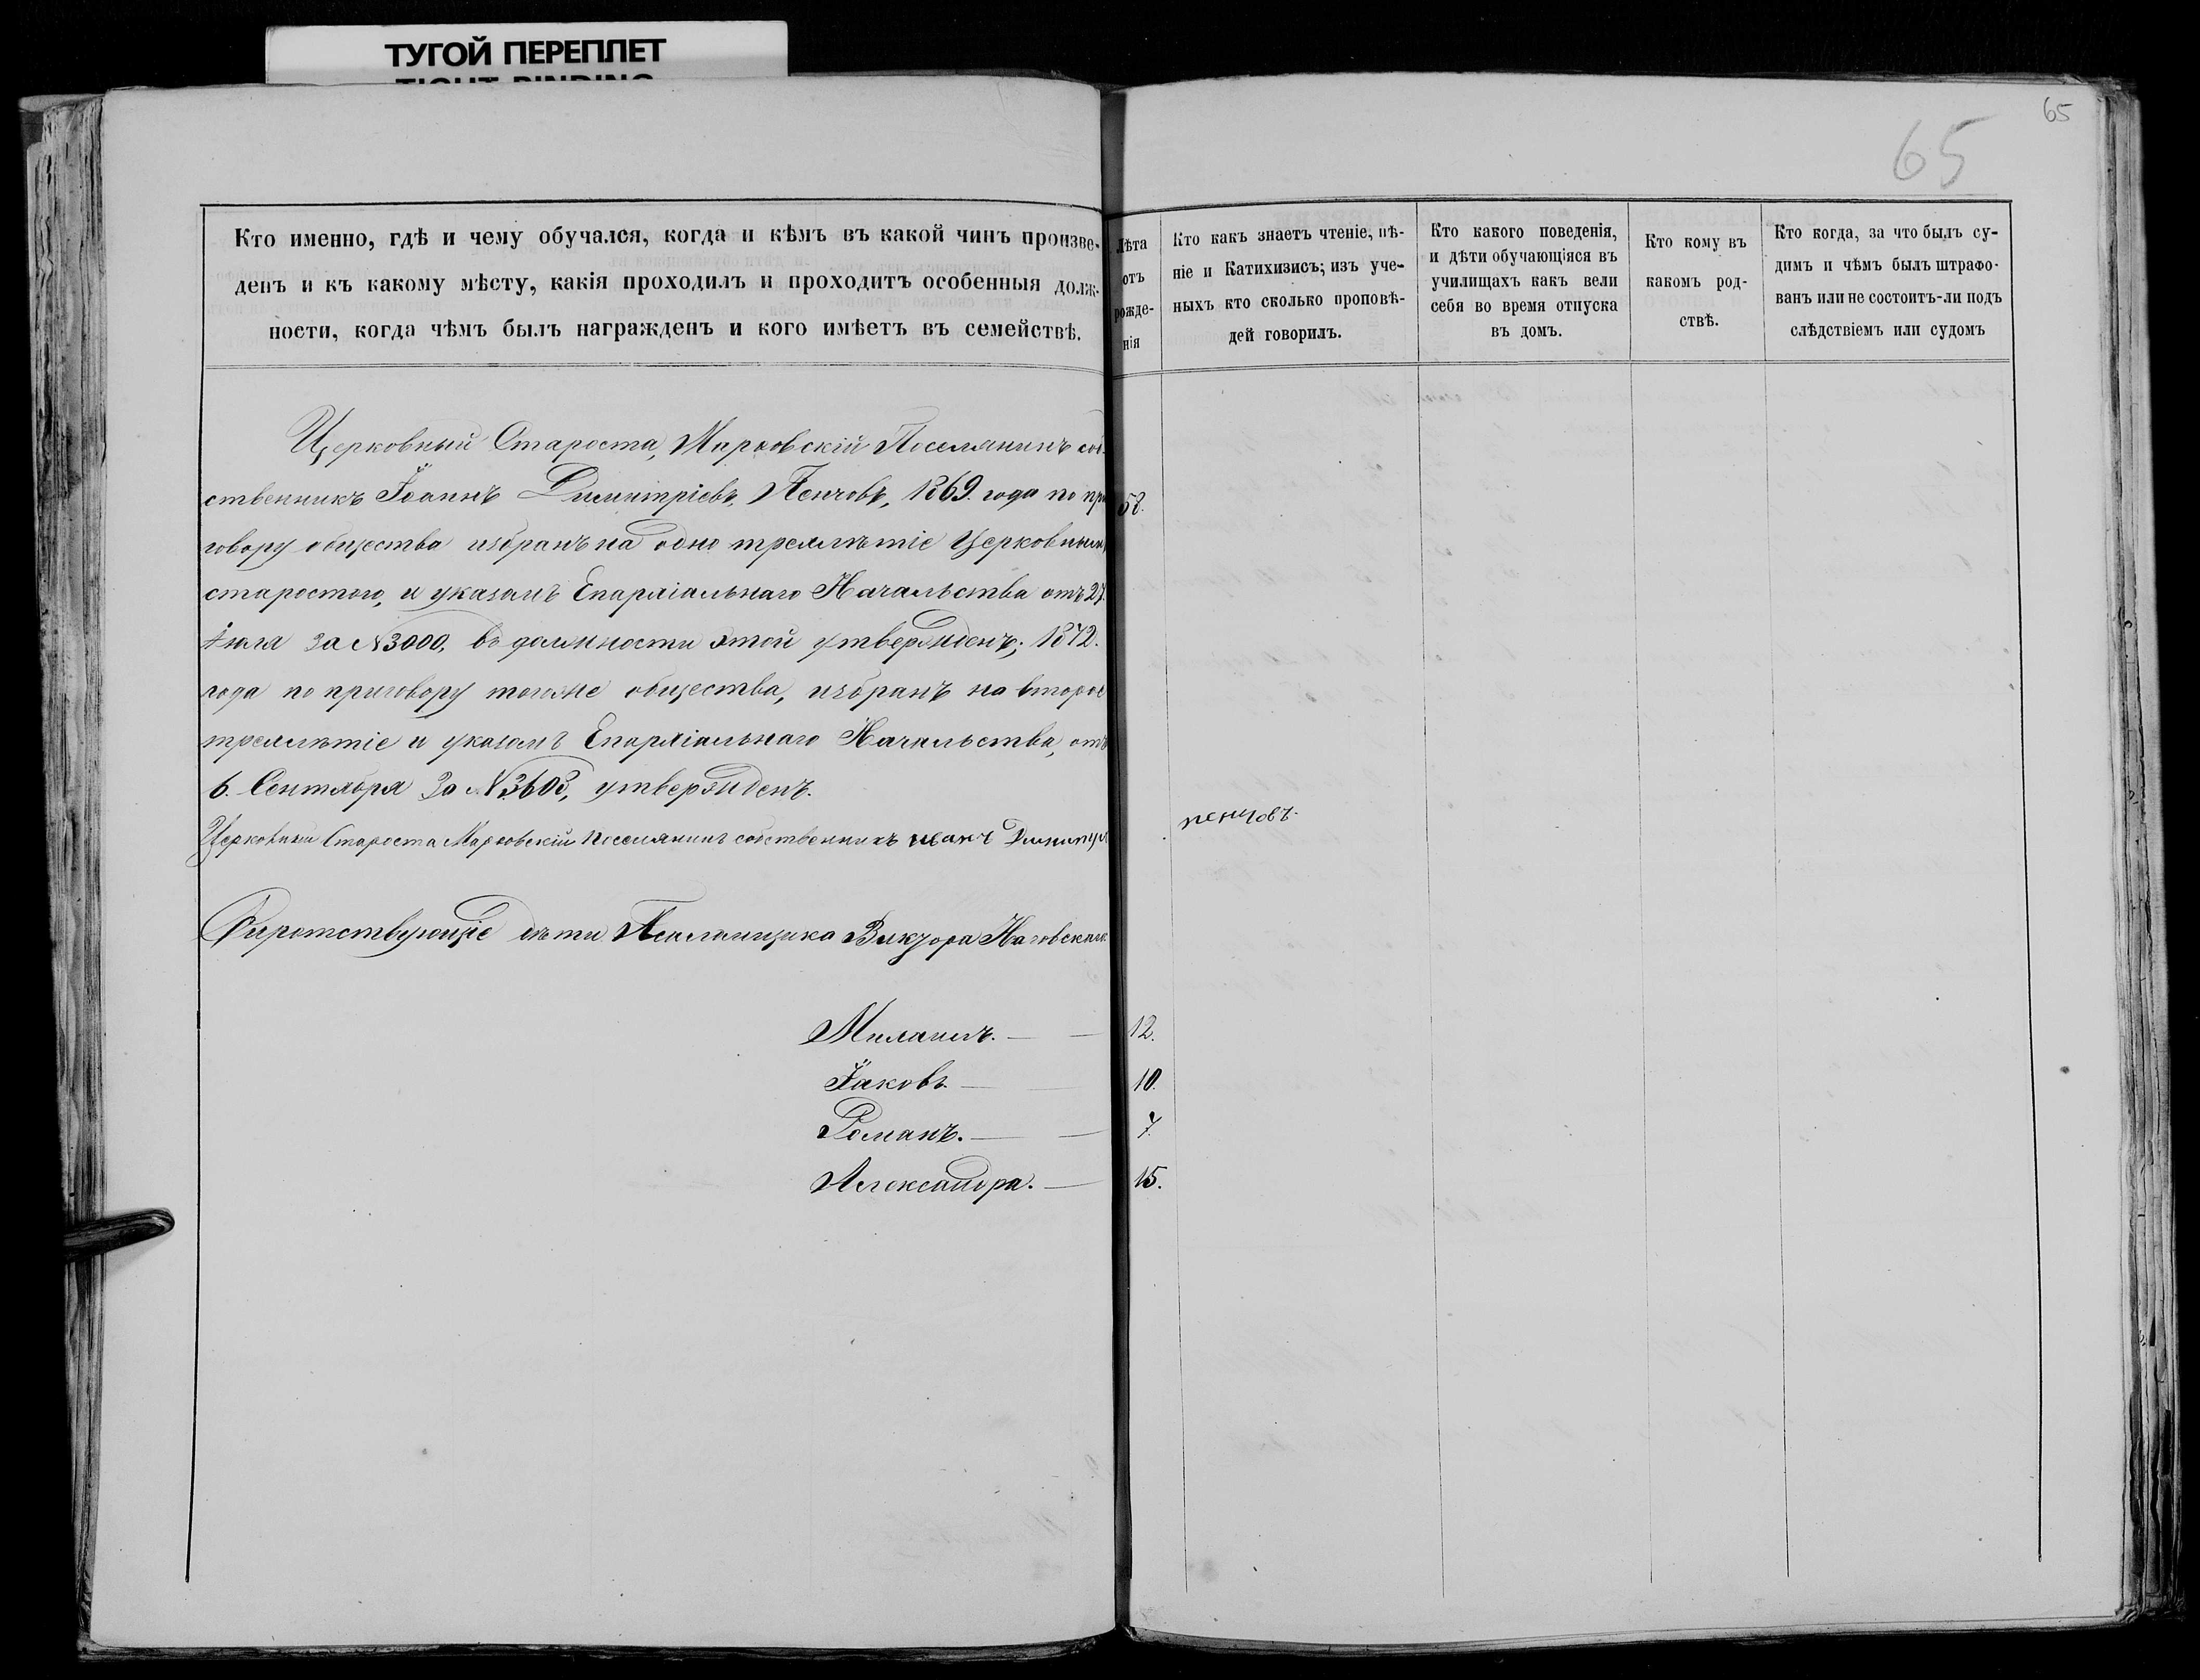 ТУГОЙ ПЕРЕПЛЕТ
TIGHT BINDING
65
65
Кто именно, гдѣ и чему обучался, когда и кѣмъ въ какой чинъ произве-
денъ и къ какому мѣсту, какія проходилъ и проходитъ особенныя долж-
ности, когда чѣмъ былъ награжденъ и кого имѣетъ въ семействѣ.
Лѣта
отъ
рожде-
нія
Кто какъ знаетъ чтеніе, пѣ-
ніе и Катихизисъ; изъ уче-
ныхъ кто сколько проповѣ-
дей говорилъ.
Кто какого поведенія,
и дѣти обучающіяся въ
училищахъ какъ вели
себя во время отпуска
въ домъ.
Кто кому въ
какомъ род-
ствѣ.
Кто когда, за что былъ су-
димъ и чѣмъ былъ штрафо-
ванъ или не состоитъ-ли подъ
слѣдствіемъ или судомъ
Церковный Староста, Марковскій Поселянинъ соб-
ственникъ Іоаннъ Димитріевъ Пенчовъ, 1869. года по при 58.
говору общества избранъ на одно трехлѣтіе Церковнымъ
старостою, и указомъ Епархіальнаго Начальства отъ 27.
Іюля за №3000, въ должности этой утвержденъ; 1872.
года по приговору тогоже общества, избранъ на второе
трехлѣтіе и указомъ Епархіальнаго Начальства, отъ
6. Сентября за №3603, утвержденъ.
Церковный Староста Марковскій поселянинъ собственникъ иванъ Димитри
пенчовъ.
Сиротствующіе дѣти Псаломщика Виктора Наговскаго:
Михаилъ. — — 12.
Іаковъ. — — 10.
Романъ. — — 7.
Александра. — 15.